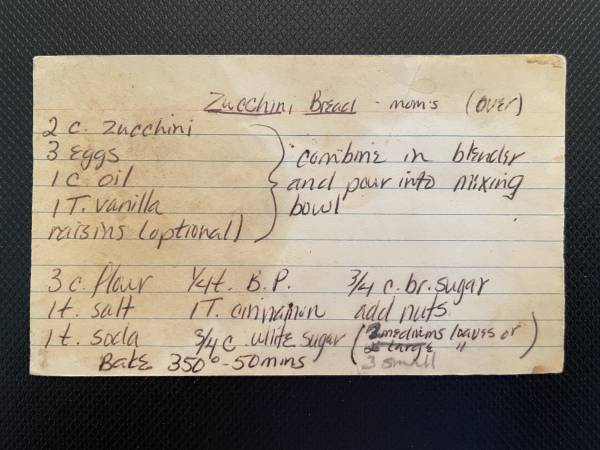 Zucchini Bread - mom's (over)
2 c. zucchini
3 eggs
1 c. oil
1 T. vanilla
raisins (optional)
combine in blender
and pour into mixing
bowl
3 c. flour 1/4 t. B.P. 3/4 c. br. sugar
1 t. salt 1 T. cinnamon add nuts
1 t. soda 3/4 c. white sugar (2 mediums loaves or
large "
3 small)
Bake 350° - 50 mins